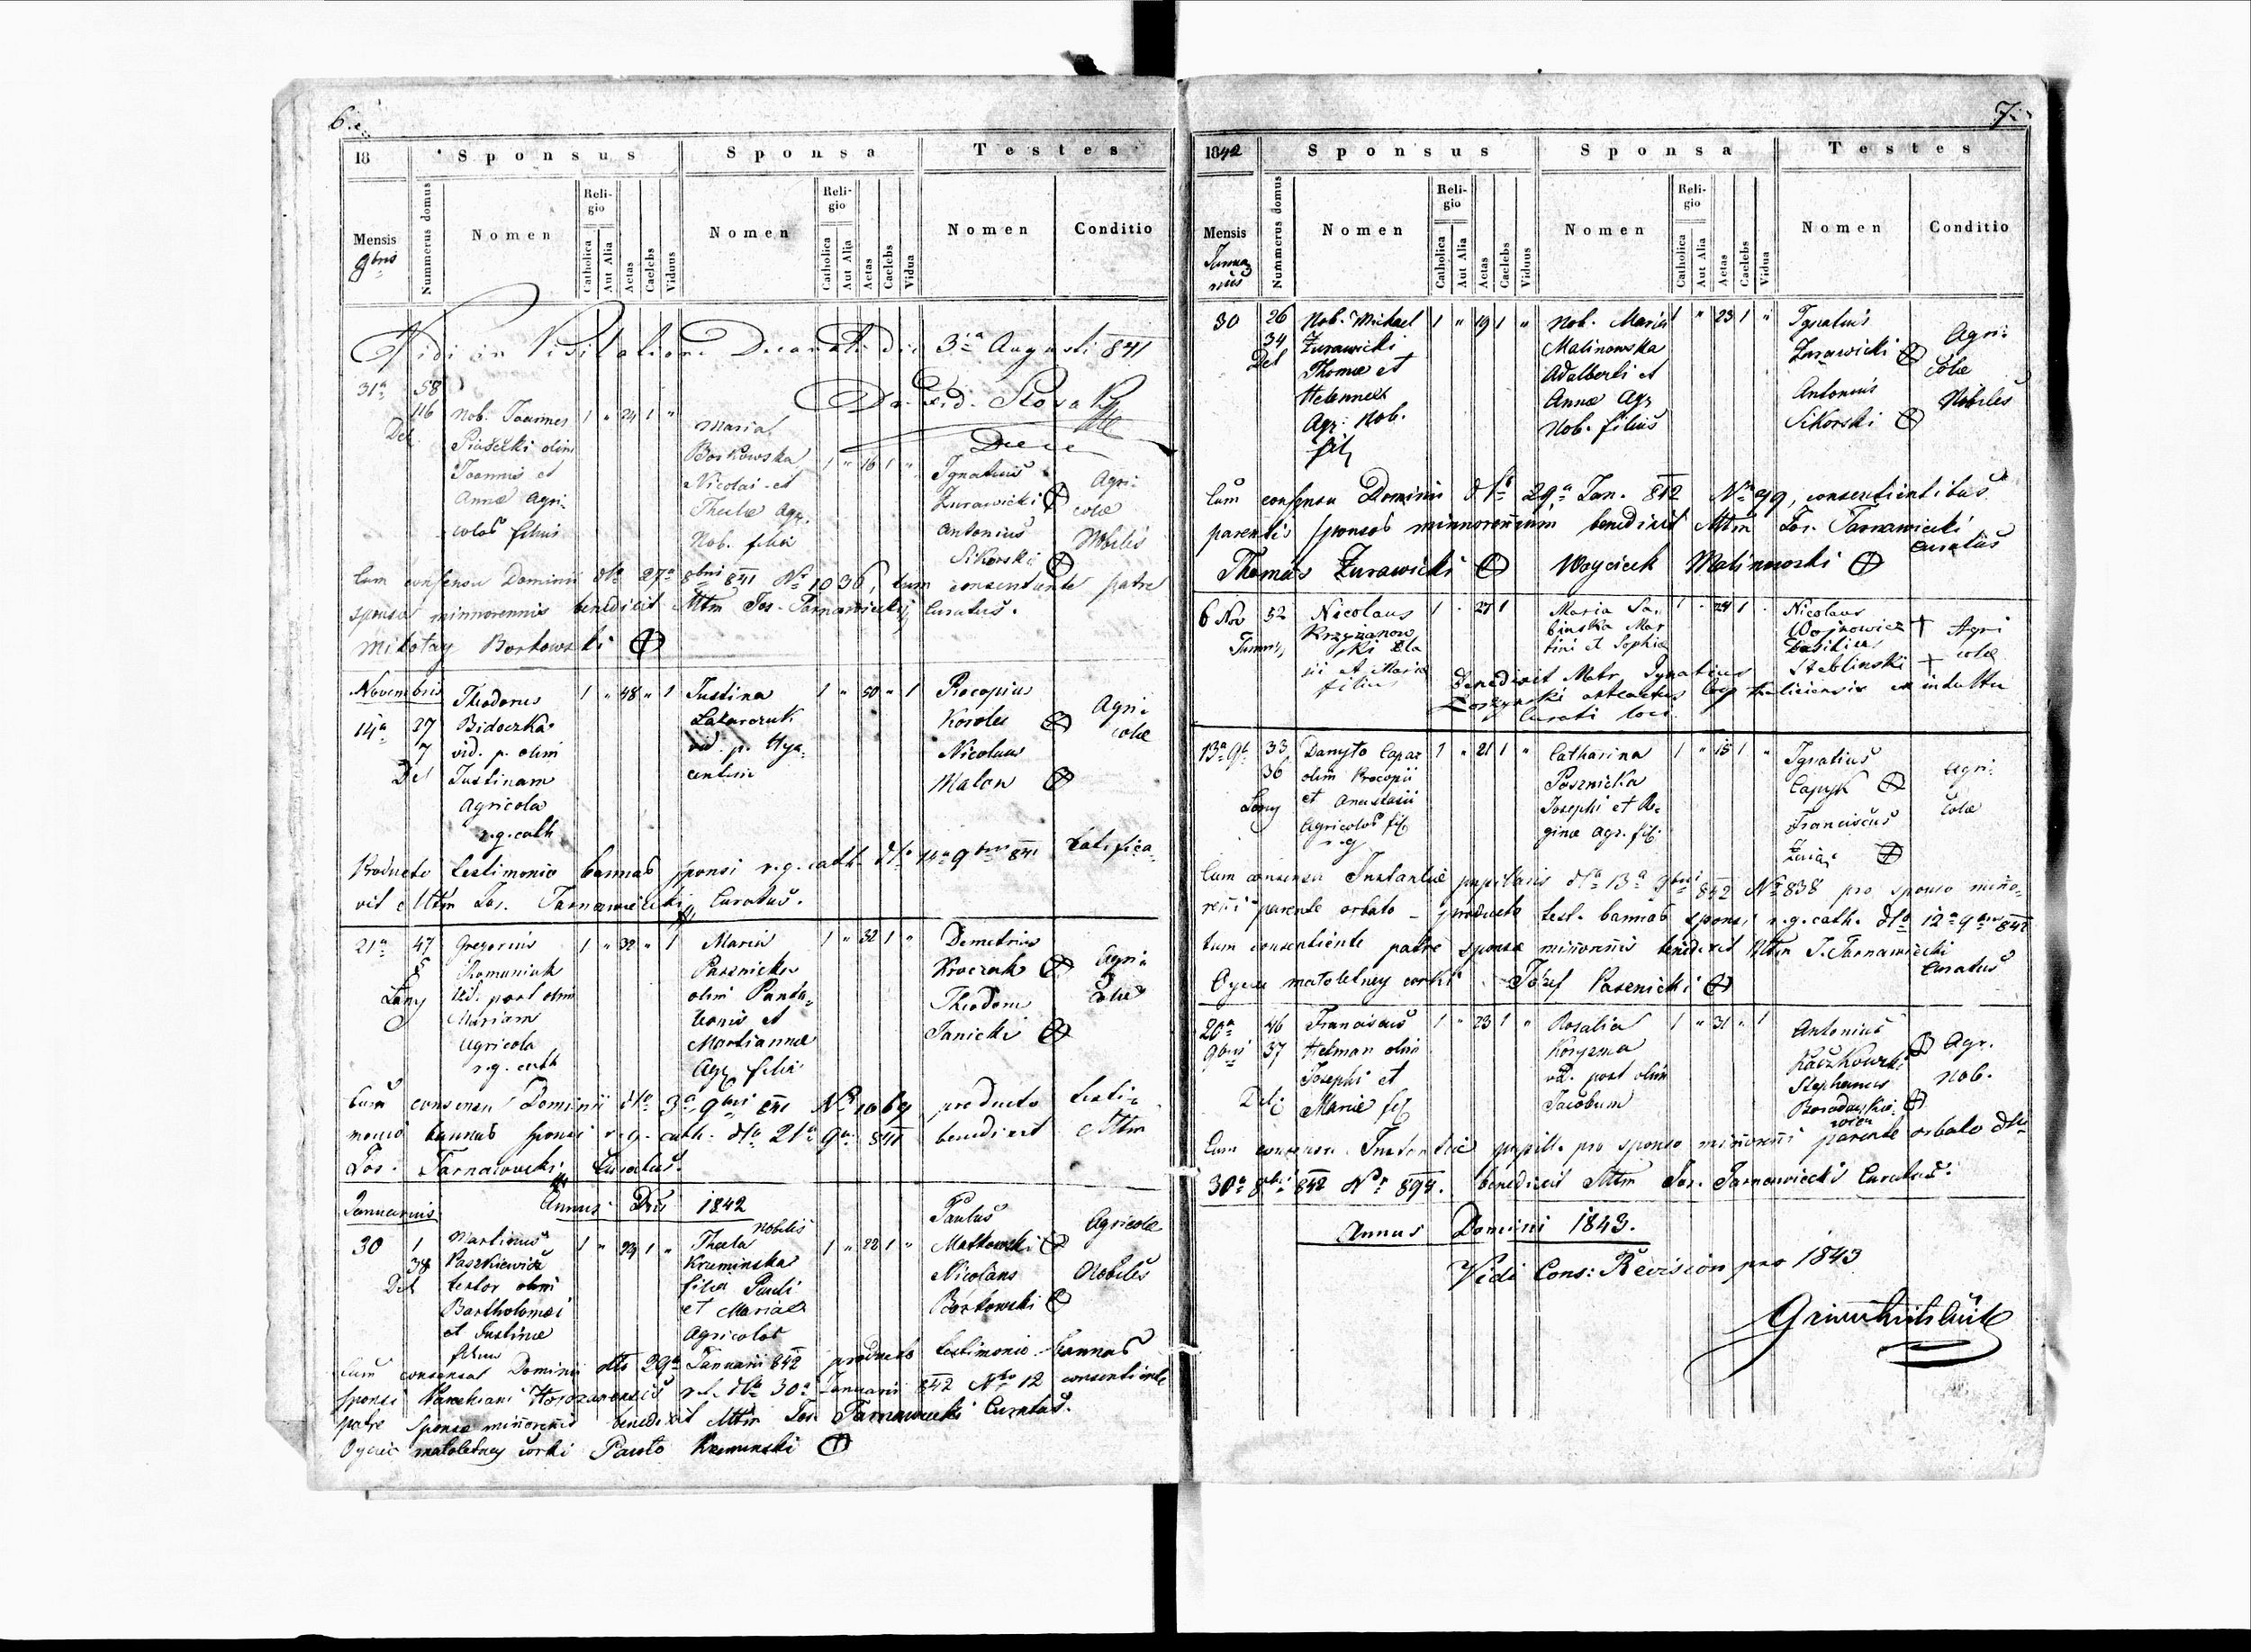 6.
18 Sponsus Sponsa Testes
Mensis 9bris Nummerus domus Nomen Religio Catholica Aut Alia Aetas Caelebs Viduus Nomen Religio Catholica Aut Alia Aetas Caelebs Vidua Nomen Conditio
Vidi in Visitatione Decanali die 3ia Augusti 841
31a 58
116 Nob. Joannes 1 " 24 1 "
Del Piasecki olim
Joannis et
Annæ Agri-
colas filius
Maria
Borkowska 1 " 16 1 "
Nicolai et
Theclæ Agr.
Nob. filia
Ignatius
Żurawicki
Antonius
Sikorski
Agri-
colæ
Nobiles
Cum consensu Dominii dto 27a 8bris 841 Nr 1036, tum consentiente patre
sponsæ minnorennis benedixit Mtm Jos. Tarnawiecki Curatus.
Mikołay Borkowski
Novembris
14a 27
7
Del
Theodorus 1 " 48 " 1
Bidoczka
vid. p. olim
Justinam
Agricola
r.g.cath
Justina 1 " 50 " 1
Lazarczuk
vid. p. Hya-
centium
Procopius
Korolec
Nicolaus
Malon
Agri-
colæ
Producto testimonio bannas sponsi r.g.cath. dto 14a 9bris 841 ratifica-
vit Mtm Jos. Tarnawiecki Curatus.
21a 47
5
Łany
Gregorius 1 " 32 " 1
Romaniuk
vid. post olim
Mariam
Agricola
r.g. cath
Maria 1 " 32 1 "
Pasznicka
olim Panta-
leonis et
Mariannæ
Agr. filia
Demetrius
Krawczuk
Theodorus
Janicki
Agri-
colæ
Cum consensu Dominii dto 3a 9bris 841 Nr 1069 producto testi-
monio bannas sponsi r.g. cath. dto 21a 9bris 841 benedixit Mtm
Jos. Tarnawiecki Curatus.
Januarius Annus Dni 1842
30 1
38
Del
Martinus 1 " 24 1 "
Paszkiewicz
textor olim
Bartholomæi
et Justinæ
filius
nobilis
Thecla 1 " 22 1 "
Krzeminska
filia Pauli
et Mariæ
Agricolas
Paulus
Malkowski
Nicolaus
Borkowski
Agricolæ
Nobiles
Cum consensu Dominii dto 29a Januarii 842 producto testimonio bannas
sponsi Parochiani r.l. dto 30a Januarii 842 Nro 12 consentiente
patre sponsæ minorennis benedixit Mtm Jos. Tarnawiecki Curatus.
Oyciec małoletney córki Pawło Krzeminski
7.
1842 Sponsus Sponsa Testes
Mensis Januarius Nummerus domus Nomen Religio Catholica Aut Alia Aetas Caelebs Viduus Nomen Religio Catholica Aut Alia Aetas Caelebs Vidua Nomen Conditio
30 26
34
Del
Nob. Michael 1 " 19 1 "
Żurawicki
Thomæ et
Helennæ
Agr. Nob.
fil
Nob. Maria 1 " 23 1 "
Malinowska
Adalberti et
Annæ Agr
Nob. filius
Ignatius
Żurawicki
Antonius
Sikorski
Agri-
colæ
Nobiles
Cum consensu Dominii dto 29a Jan. 842 Nro 99, consentientibus
parentis sponsos minnorennium benedixit Mtm Jos. Tarnawiecki
Curatus
Thomas Żurawicki Woyciech Malinowski
6 Nov 52 Nicolaus 1 - 27 1
Krzyzanow
ski
et Maria
filius
Maria Sa-
binska Mar
tini et Sophiæ 1 - 24 1 -
Nicolaus
Woynowicz
Basilius
Steblinski
Agri
colæ
Benedixit Mtr Ignatius
ex indultu
Curati loci
13a 9b 33
36
Łany
Danyło Capar 1 " 21 1 "
olim Procopii
et Anastasii
Agricolas fil
r.g
Catharina 1 " 15 1 "
Pasznicka
Josephi et Re-
ginæ Agr. fil.
Ignatius
Franciscus
Agri-
colæ
Cum consensu Instantiæ pupilaris dto 13a 9bris 842 Nr 838 pro sponso mino-
renni parente orbato – producto test. bannas sponsi r.g.cath. dto 12a 9bris 842
tum consentiente patre sponsæ minorennis benedixit Mtm J. Tarnawiecki
Curatus
Oyciec małoletney corki Józef Pasznicki
20a 46
9bris 37
Del
Franciscus 1 " 23 1 "
Hetman olim
Josephi et
Mariæ fil
Rosalia 1 " 31 " 1
Koryzma
vid. post olim
Jacobum
Antonius
Raczkowski
Stephanus
Agr.
Nob.
Cum consensu Instantiæ pupill. pro sponso minorenni parente orbato dto
30a 8bris 842 Nr 894. benedixit Mtm Jos. Tarnawiecki Curatus.
Annus Domini 1843.
Vidi Cons: Revision pro 1843